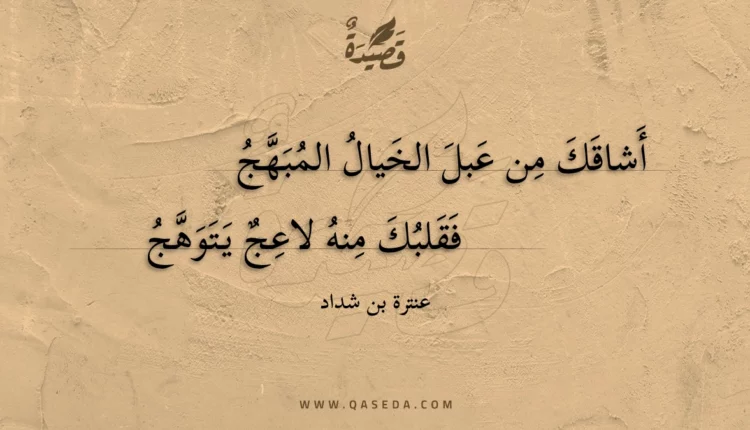 قَصِيدَةٌ
أَشاقَكَ مِن عَبلَ الخَيالُ المُبَهَّجُ
فَقَلبُكَ مِنهُ لاعِجٌ يَتَوَهَّجُ
عنترة بن شداد
WWW.QASEDA.COM